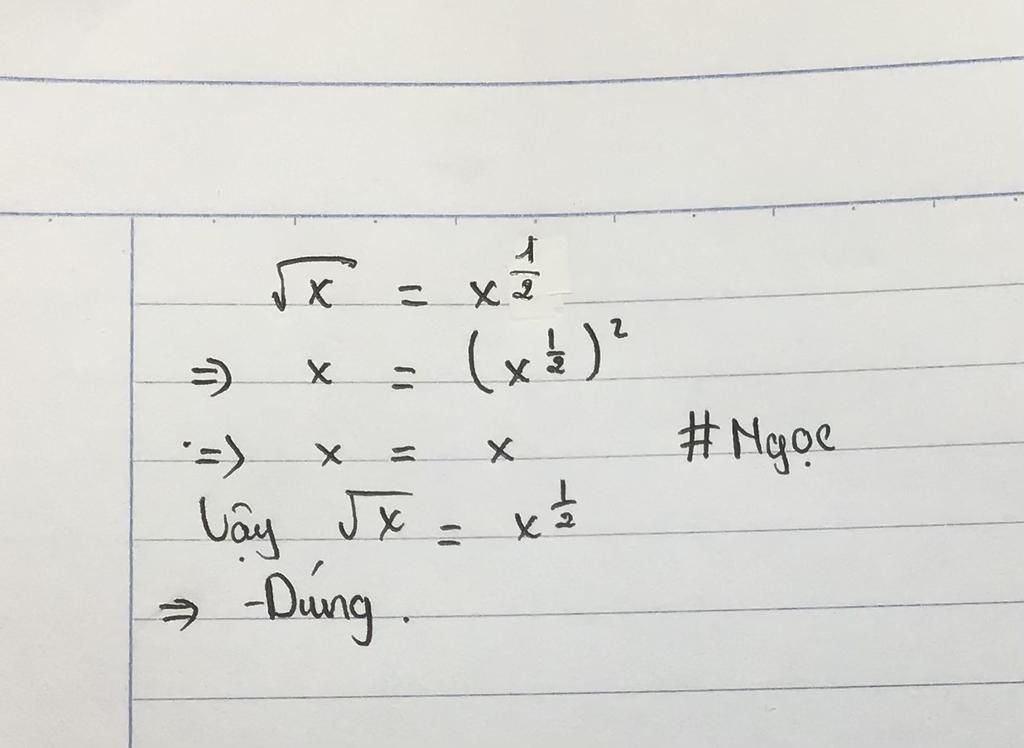 √x = x^(1/2)
⇒ x = (x^(1/2))²
⇒ x = x #Ngọc
Vậy √x = x^(1/2)
⇒ Đúng.